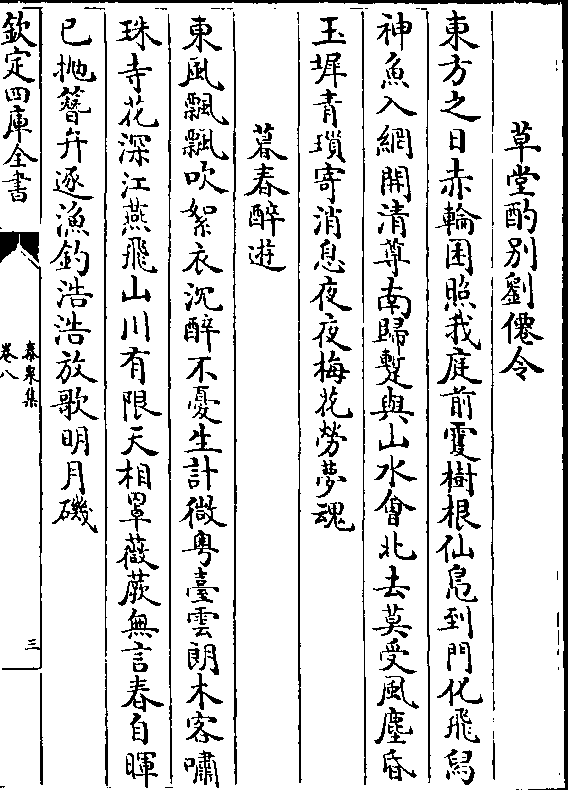 草堂酌别劉僊令
東方之日赤輪囷照我庭前雙樹根仙鳬到門化飛舄
神魚入網開清尊南歸蹔與山水㑹北去莫受風塵昏
玉墀青瑣寄消息夜夜梅花勞夢魂
暮春醉遊
東風飄飄吹絮衣沉醉不憂生計微粤臺雲朗木客嘯
珠寺花深江燕飛山川有限天相罩薇蕨無言春自暉
已抛簪弁逐漁釣浩浩放歌明月磯
欽定四庫全書
泰泉集
卷八
三